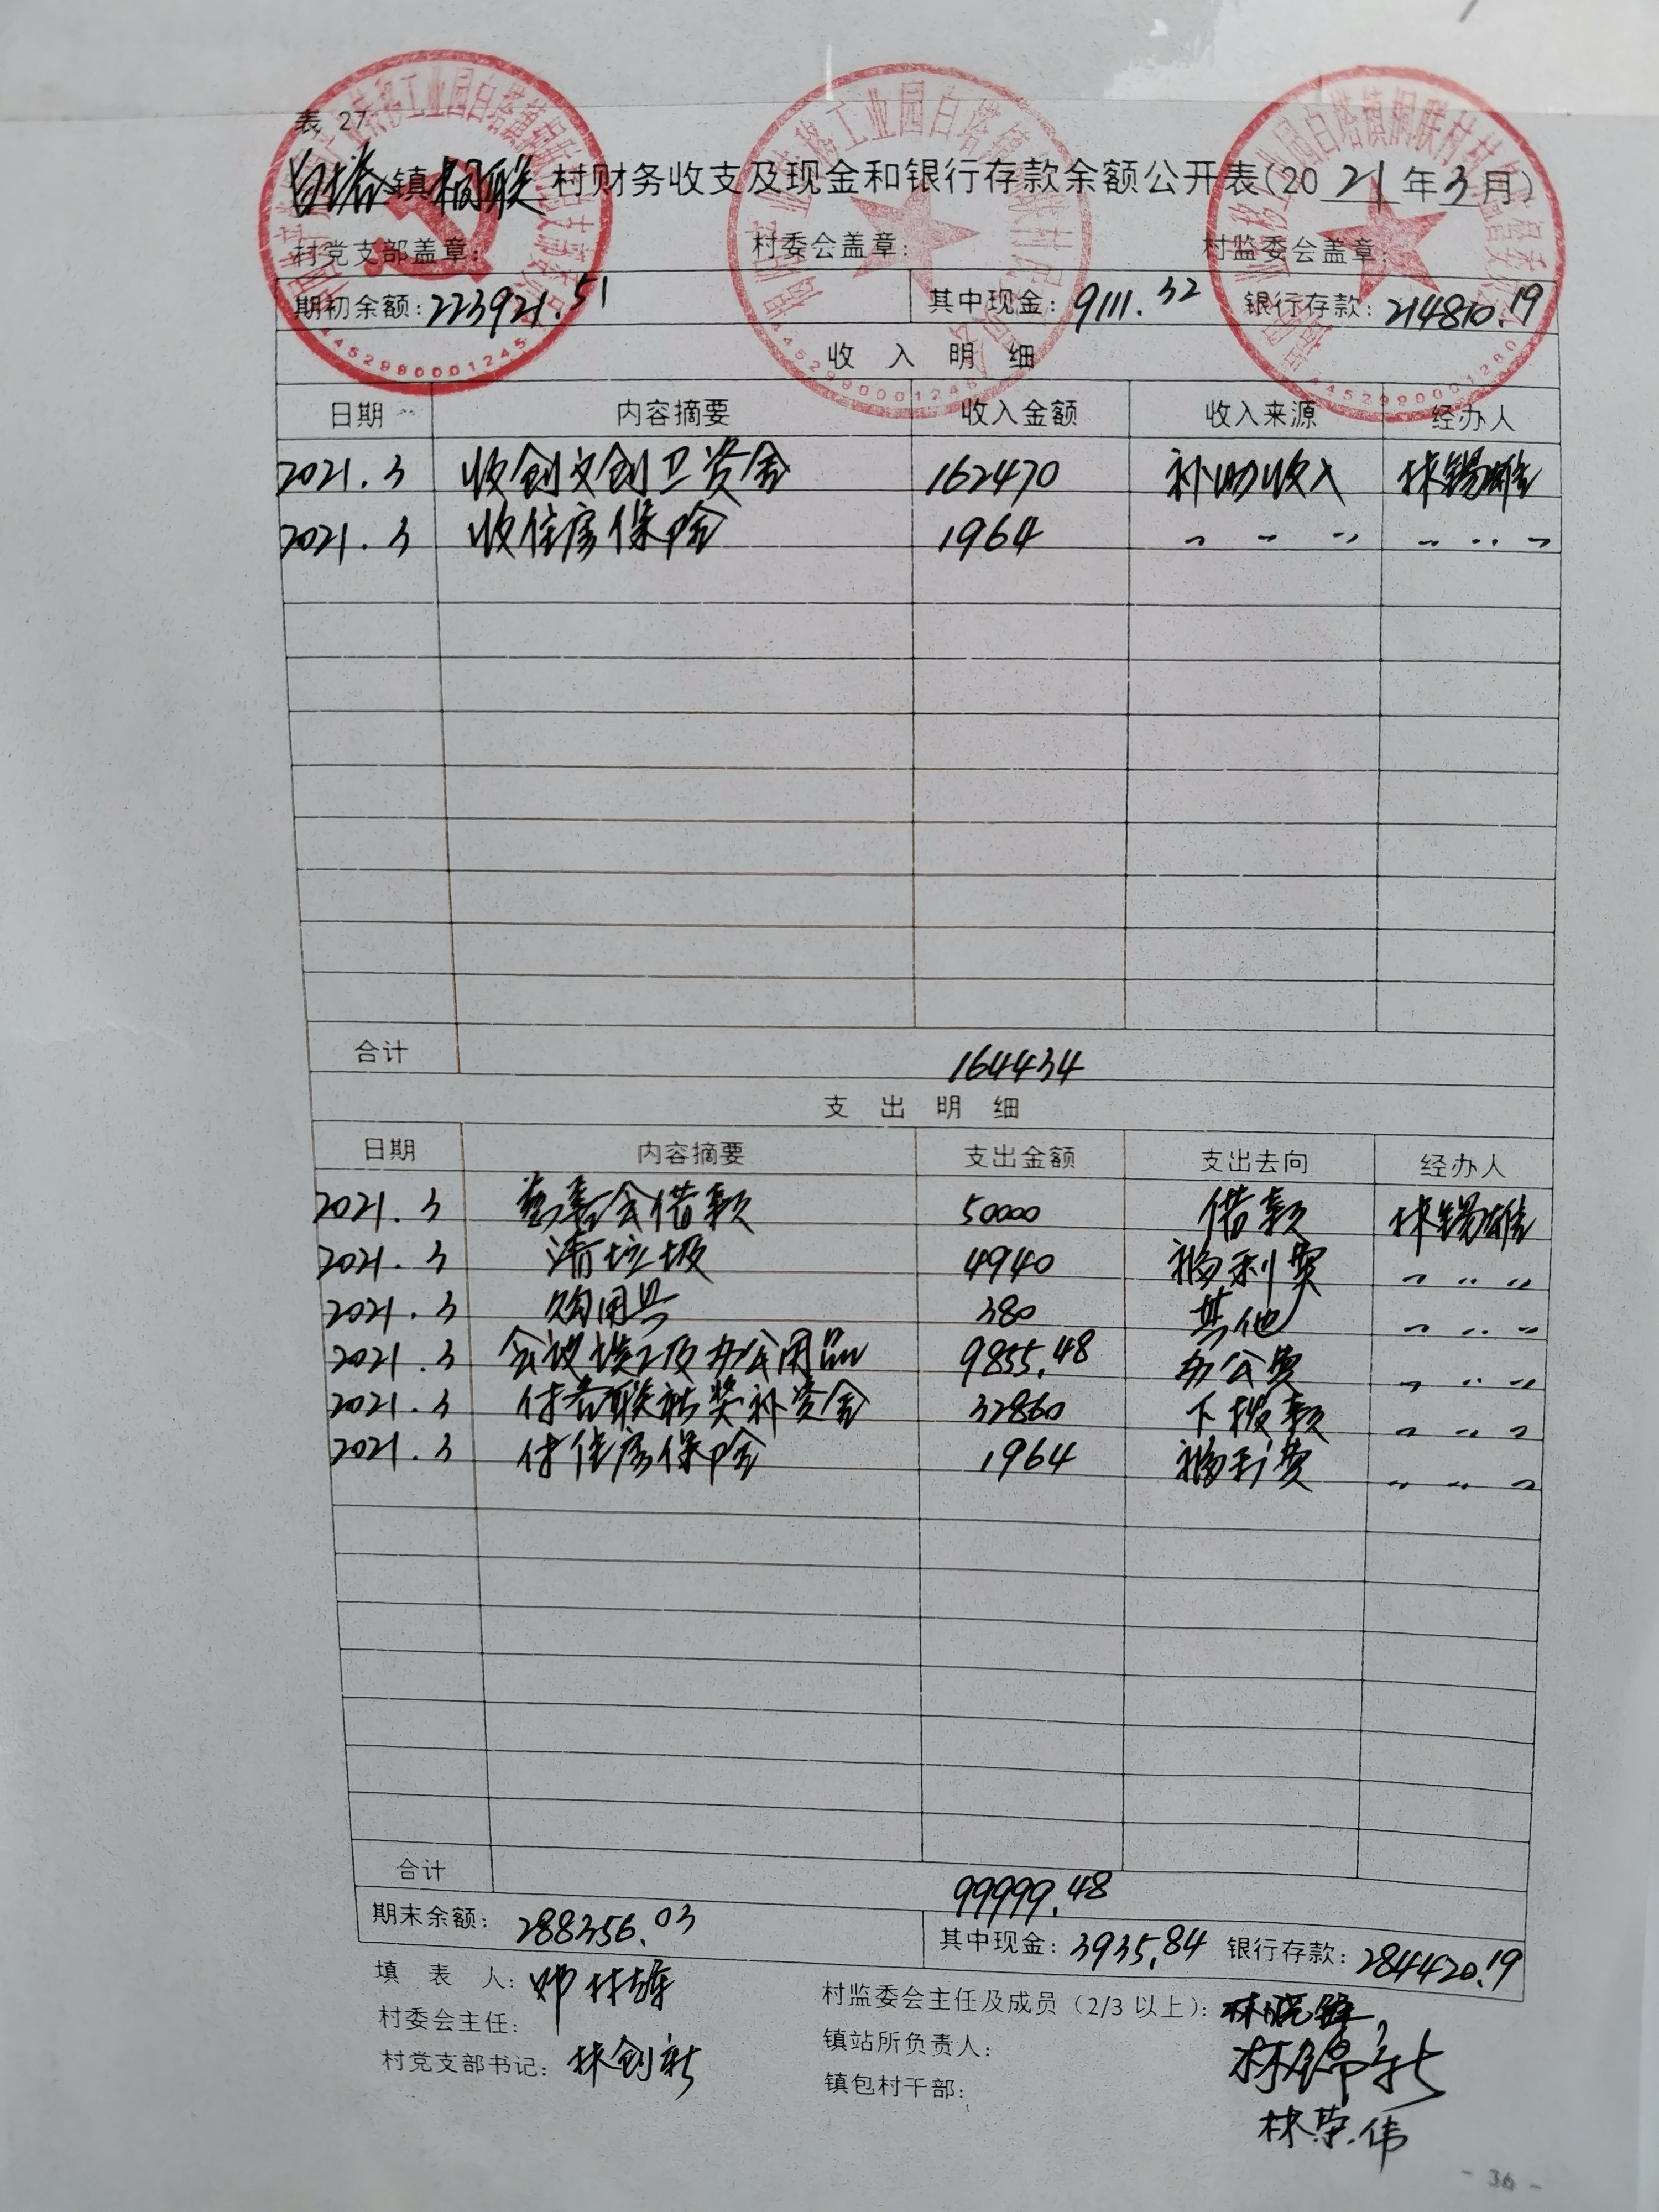 表 27
白塔镇桐联村财务收支及现金和银行存款余额公开表(2021年3月)
村党支部盖章: 村委会盖章: 村监委会盖章:
期初余额:223921.51 其中现金:9111.32 银行存款:214810.19
收 入 明 细
日期 内容摘要 收入金额 收入来源 经办人
2021.3 收创文创卫资金 162470 补助收入 林锡雄
2021.3 收住房保险 1964 〃 〃 〃 〃 〃 〃
合计 164434
支 出 明 细
日期 内容摘要 支出金额 支出去向 经办人
2021.3 委会借款 50000 借款 林锡雄
2021.3 清垃圾 4940 福利费 〃 〃 〃
2021.3 购用具 380 其他 〃 〃 〃
2021.3 会议及办公用品 9855.48 办公费 〃 〃 〃
2021.3 付各联社奖补资金 32860 下拨款 〃 〃 〃
2021.3 付住房保险 1964 福利费 〃 〃 〃
合计 99999.48
期末余额: 288356.03 其中现金: 3935.84 银行存款: 284420.19
填 表 人: 村监委会主任及成员(2/3 以上): 林晓锋
村委会主任: 镇站所负责人:
村党支部书记: 林创新 镇包村干部:
林荣伟
- 36 -